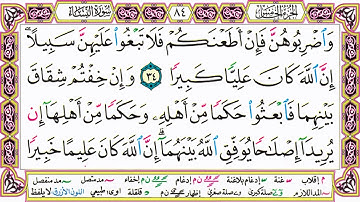 سورة النساء ٨٤ الجزء الخامس
وَٱضۡرِبُوهُنَّۖ فَإِنۡ أَطَعۡنَكُمۡ فَلَا تَبۡغُواْ عَلَيۡهِنَّ سَبِيلًاۗ
إِنَّ ٱللَّهَ كَانَ عَلِيّٗا كَبِيرٗا ٣٤ وَإِنۡ خِفۡتُمۡ شِقَاقَ
بَيۡنِهِمَا فَٱبۡعَثُواْ حَكَمٗا مِّنۡ أَهۡلِهِۦ وَحَكَمٗا مِّنۡ أَهۡلِهَآ إِن
يُرِيدَآ إِصۡلَٰحٗا يُوَفِّقِ ٱللَّهُ بَيۡنَهُمَآۗ إِنَّ ٱللَّهَ كَانَ عَلِيمًا خَبِيرٗا